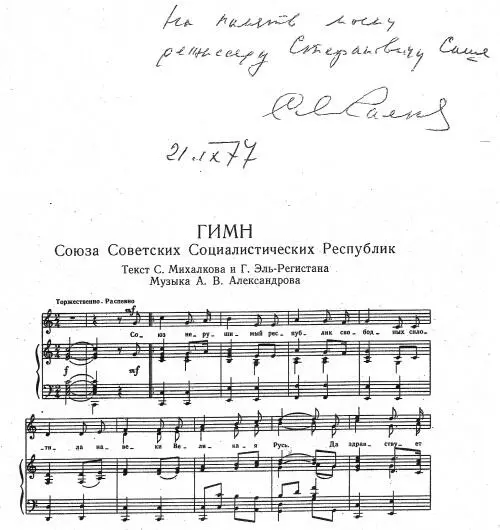 На память моему
режиссеру Стефановичу Саше
21.IX 77
ГИМН
Союза Советских Социалистических Республик
Текст С. Михалкова и Г. Эль-Регистана
Музыка А. В. Александрова
Торжественно. Распевно
mf
Со_юз не_ру_ши_мый рес_пуб_лик сво_бод_ных спло_
f mf
ти_ла на_ве_ки Ве_ли_ка_я Русь. Да здрав_ству_ет